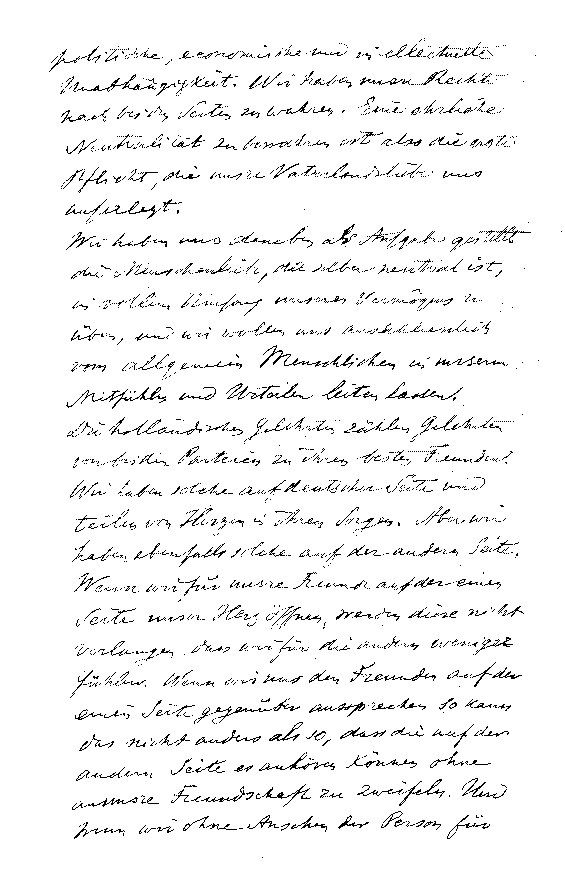 politische, economische und intellectuelle
Unabhängigkeit. Wir haben unsre Rechte
nach beiden Seiten zu wahren. Eine ehrliche
Neutralität zu bewahren ist also die erste
Pflicht, die unsre Vaterlandsliebe uns
auferlegt.
Wir haben uns daneben als Aufgabe gestellt
die Menschenlich, die selber neutral ist,
in vollem Umfang unseres Vermögens zu
üben, und wir wollen uns ausschliesslich
vom allgemein Menschlichen in unserm
Mitfühlen und Urteilen leiten lassen.
Die holländischen Gelehrten zählen Gelehrten
von beiden Parteien zu ihren besten Freunden.
Wir haben solche auf deutscher Seite und
teilen von Herzen in ihren Sorgen. Aber wir
haben ebenfalls solche auf der andern Seite.
Wenn wir für unsre Freunde auf der einen
Seite unser Herz öffnen, werden diese nicht
verlangen dass wir für die andern weniger
fühlen. Wenn wir uns den Freunden auf der
einen Seite gegenüber aussprechen so kann
das nicht anders als so, dass die auf der
andern Seite es anhören können ohne
an unsre Freundschaft zu zweifeln. Und
wenn wir ohne Ansehen der Person für